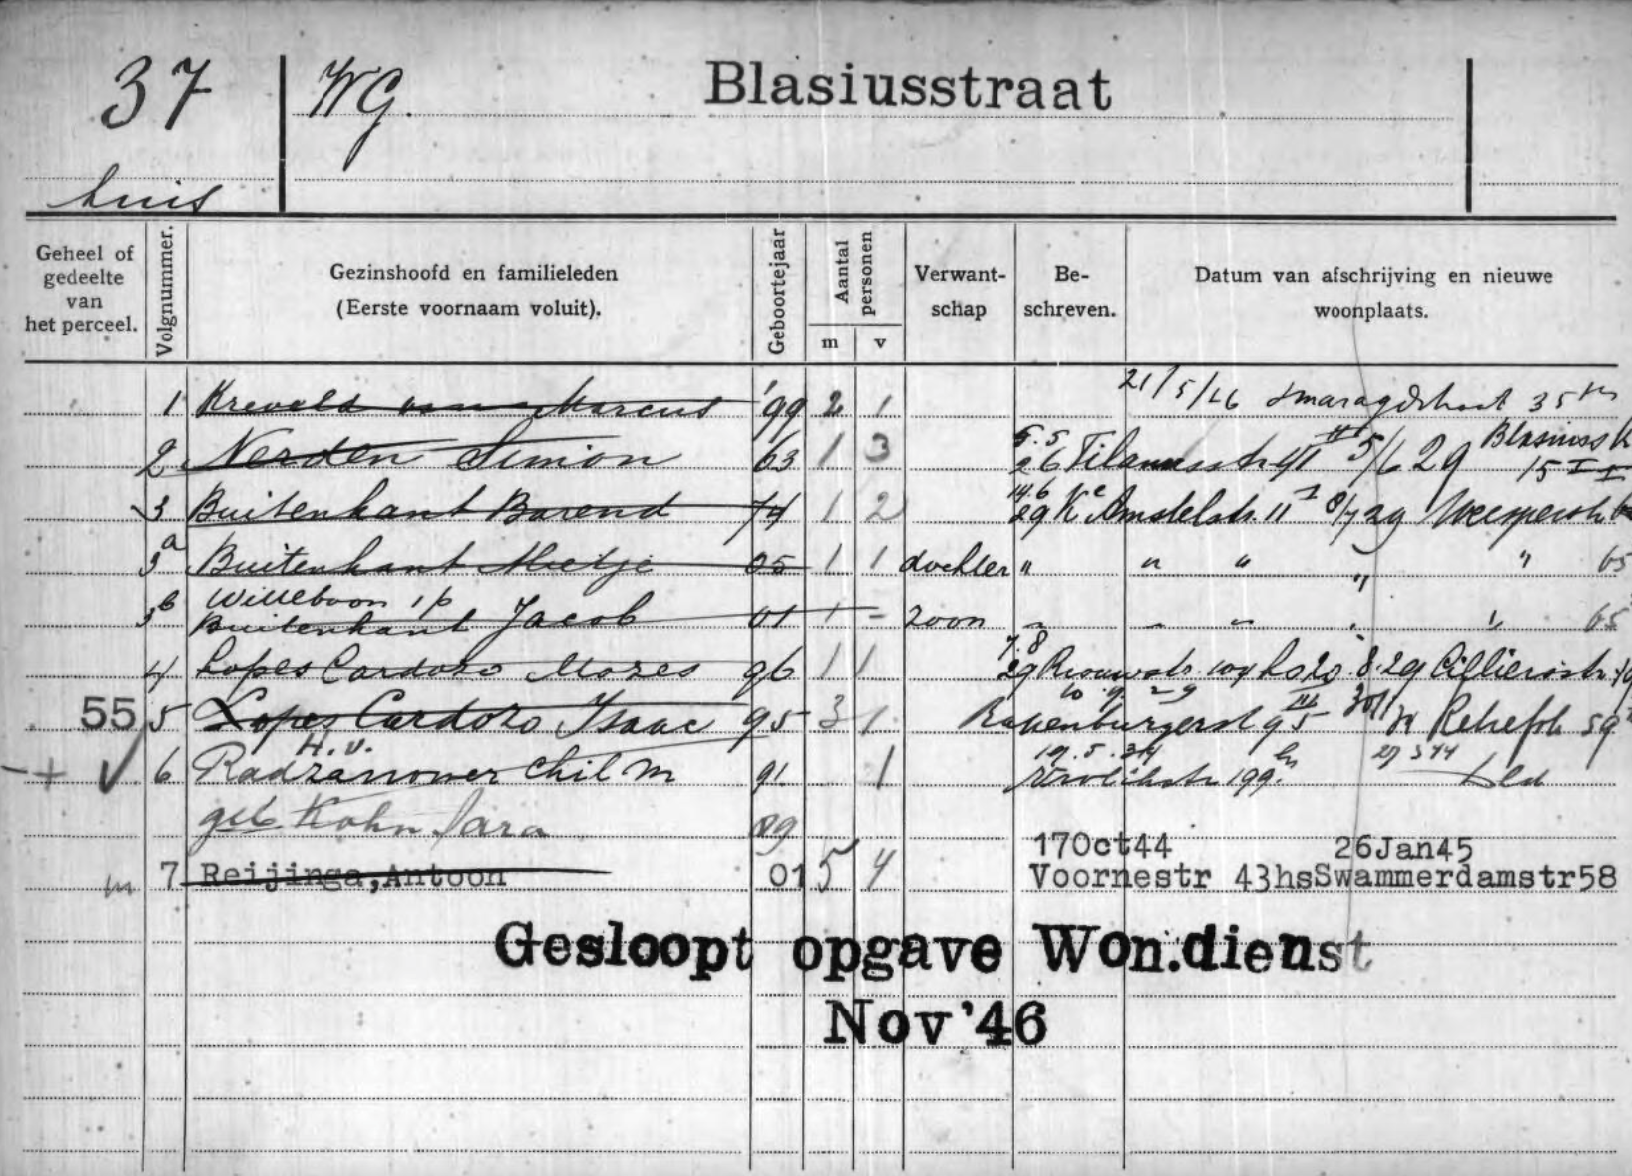 37 WG. Blasiusstraat
huis
Geheel of gedeelte van het perceel. Volgnummer. Gezinshoofd en familieleden (Eerste voornaam voluit). Geboortejaar Aantal personen m v Verwantschap Beschreven. Datum van afschrijving en nieuwe woonplaats.
1 Kreveld van Marcus '99 2 1 21/5/26 Smaragdstraat 35
2 Nerden Simon 63 1 3 5.5 26 5/6 29 Blasiusstr 15 II
3 Buitenkant Barend 74 1 2 14.6 29 Kе Amstelstr. 11 I 8/7 29 Weesperstr
3a Buitenkant Mietje 05 1 1 dochter " " " " " 65
Willeboon
3b Buitenkant Jacob 01 1 - zoon " " " " " 65
4 Lopes Cardozo Mozes 96 1 1 7.8 29 8.29 Cilliersstr
55 5 Lopes Cardozo Isaac 95 3 1 10.9.29 Rapenburgerst 95 III Retiefstr 59
H.v.
6 Radzanower Chil M 91 1 19.5.34 199 hs 27 3 44
geb. Kohn Sara 09
17Oct44 26Jan45
7 Reijinga,Antoon 01 5 4 Voornestr 43hs Swammerdamstr58
Gesloopt opgave Won.dienst
Nov '46